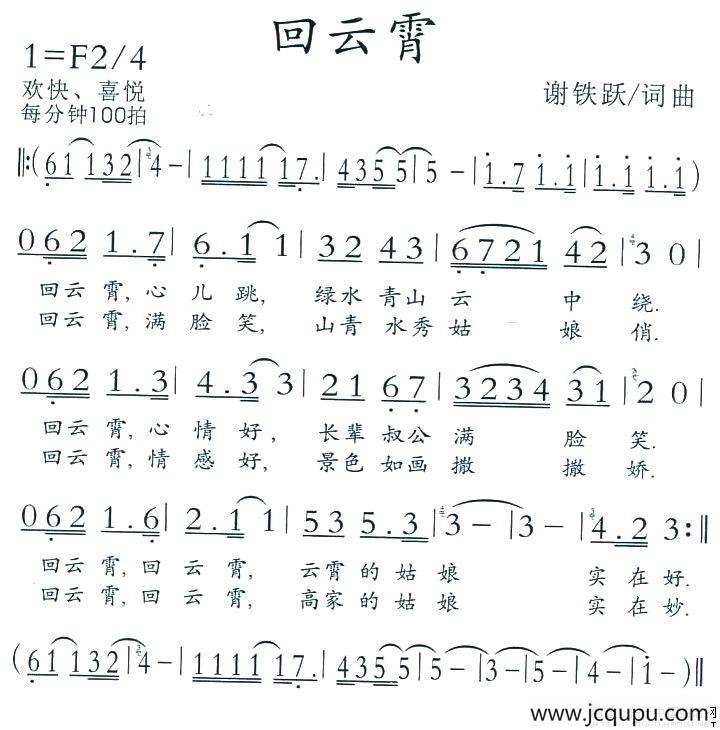 回云霄
1=F2/4
欢快、喜悦
每分钟100拍
谢铁跃/词曲
‖:(61 132|4-|1111 17.|4355 5|5-|1.7 1.1|1.1 1.1)
062 1.7|6.1 1|32 43|6721 42|3 0|
回云霄,心儿跳,绿水青山云中绕.
回云霄,满脸笑,山青水秀姑娘俏.
062 1.3|4.3 3|21 67|3234 31|2 0|
回云霄,心情好,长辈叔公满脸笑.
回云霄,情感好,景色如画撒撒娇.
062 1.6|2.1 1|53 5.3|3-|3-|4.2 3:‖
回云霄,回云霄,云霄的姑娘实在好.
回云霄,回云霄,高家的姑娘实在妙.
(61 132|4-|1111 17.|4355|5-|3-|5-|4-|1-)‖
www.jcqupu.com